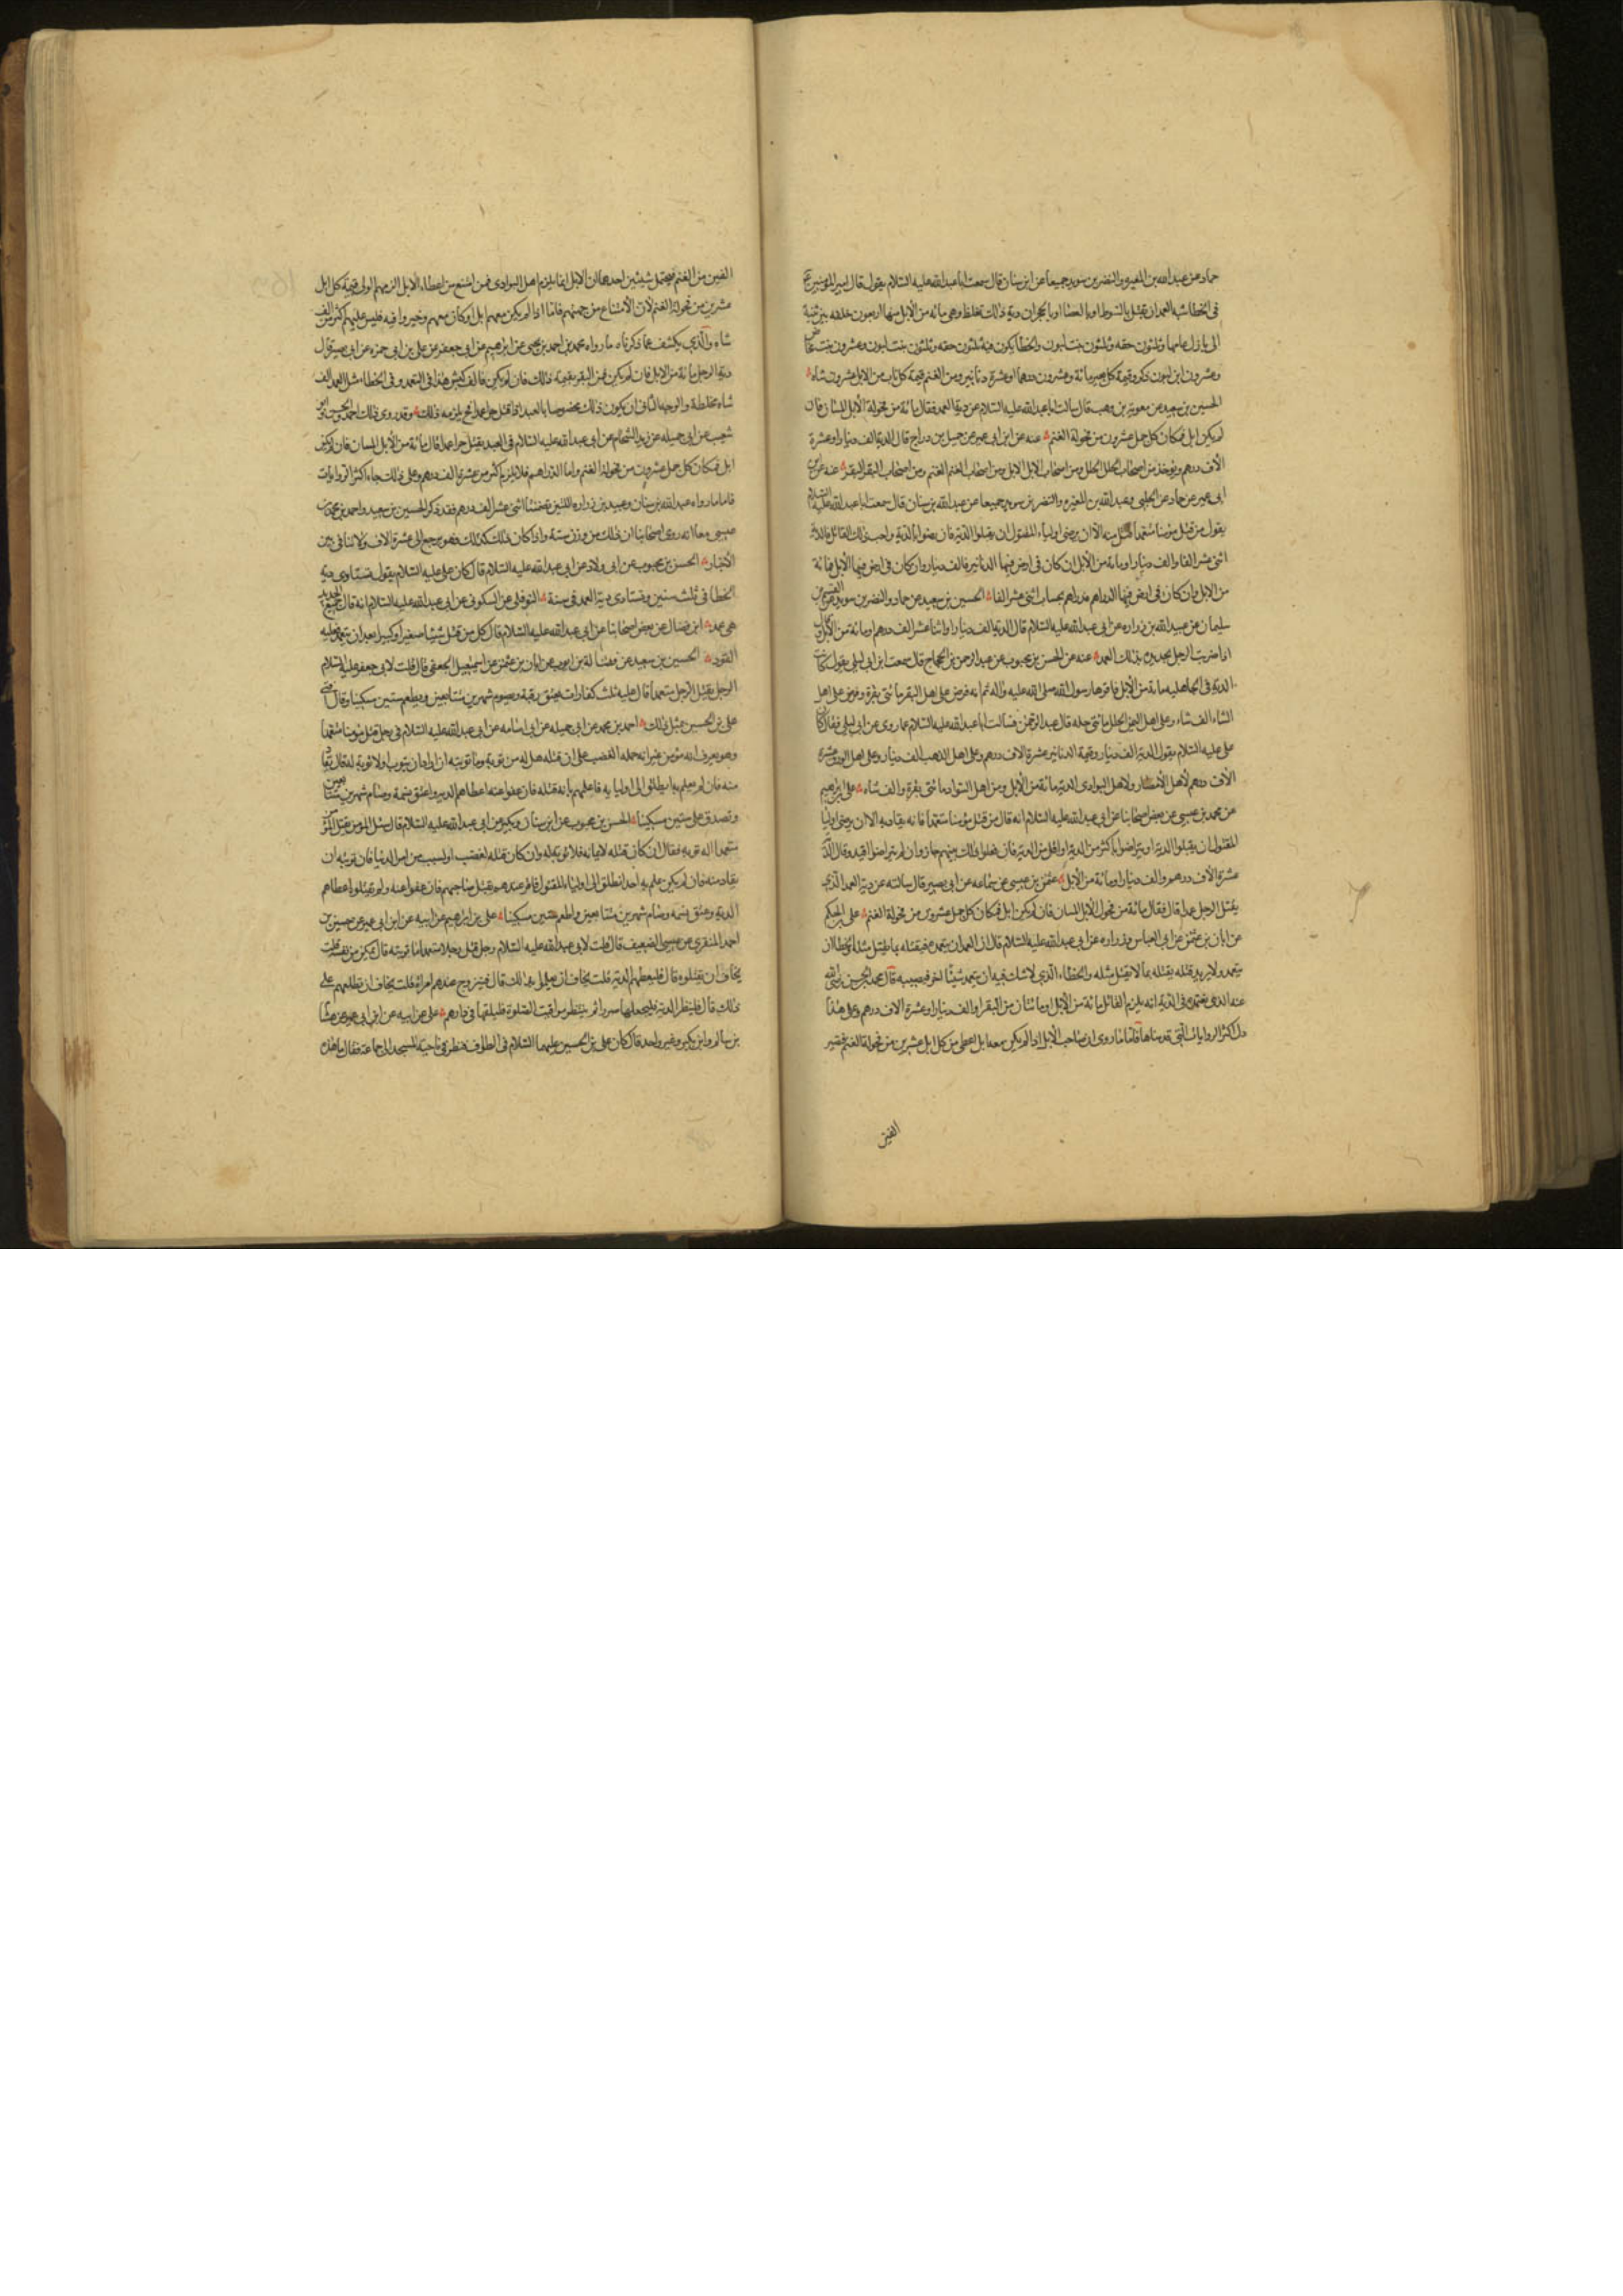 حماد عن عبد الله بن المغيره والنضر بن سويد جميعا عن ابن سنان قال سمعت ابا عبد الله عليه السلام يقول قال امير المؤمنين ع
فى الخطا شبه العمد ان يقتل بالسوط او بالعصا او بالحجر ان دية ذلك تغلظ وهى مائه من الابل منها اربعون خلفه بين ثنية
الى بازل عامها وثلثون حقه وثلثون بنت لبون والخطأ يكون فيه ثلثون حقه وثلثون بنت لبون وعشرون بنت مخاض
وعشرون ابن لبون ذكر وقيمة كل بعير مائة وعشرون درهما او عشرة دنانير ومن الغنم قيمة كل ناب من الابل عشرون شاه
الحسين بن سعيد عن معوية بن وهب قال سالت ابا عبد الله عليه السلام عن دية العمد فقال مائة من فحولة الابل المسان فان
لم يكن ابل فمكان كل جمل عشرون من فحولة الغنم عنه عن ابن ابى عمير عن جميل بن دراج قال الدية الف دينار او عشرة
الاف درهم ويؤخذ من اصحاب الحلل الحلل ومن اصحاب الابل الابل ومن اصحاب الغنم الغنم ومن اصحاب البقر البقر عنه عن ابن
ابى عمير عن حماد عن الحلبى وعبد الله بن المغيره والنضر بن سويد جميعا عن عبد الله بن سنان قال سمعت ابا عبد الله عليه السلام
يقول من قتل مؤمنا متعمدا منه الا ان يرضى اولياء المقتول ان يقبلوا الدية فان رضوا بالدية واحب ذلك القاتل فالدية
اثنى عشر الفا او الف دينار او مائة من الابل ان كان فى ارض فيها الدنانير فالف دينار وان كان فى ارض فيها الابل فمائة
من الابل وان كان فى ارض فيها الدراهم فدراهم بحساب اثنى عشر الفا الحسين بن سعيد عن حماد والنضر بن سويد عن القسم بن
سليمان عن عبيد الله بن زراره عن ابى عبد الله عليه السلام قال الدية الف دينار او اثنا عشر الف درهم او مائة من الابل وقال
اذا ضربت الرجل بحديدة فذلك العمد عنه عن الحسن بن محبوب عن عبد الرحمن بن الحجاج قال سمعت ابن ابى ليلى يقول كانت
الدية فى الجاهليه مائة من الابل فاقرها رسول الله صلى الله عليه واله ثم انه فرض على اهل البقر مائتى بقرة وفرض على اهل
الشاء الف شاه وعلى اهل اليمن الحلل مائتى حله قال عبد الرحمن فسالت ابا عبد الله عليه السلام عما روى عن ابى ليلى فقال كان
على عليه السلام يقول الدية الف دينار وقيمة الدنانير عشرة الاف درهم وعلى اهل الذهب الف دينار وعلى اهل الورق عشرة
الاف درهم لأهل الأمصار ولاهل البوادى الدية مائة من الأبل ومن اهل السواد مائتى بقرة والف شاه على بن ابرهيم
عن محمد بن عيسى عن بعض اصحابنا عن ابى عبد الله عليه السلام انه قال من قتل مؤمنا متعمدا فانه يقاد به الا ان يرضى اوليا
المقتول ان يقبلوا الدية او يتراضوا باكثر من الدية او اقل من الدية فان فعلوا ذلك بينهم جاز وان لم يتراضوا اقيد وقال الدية
عشرة الاف درهم والف دينار او مائة من الأبل عثمن بن عيسى عن سماعه عن ابى بصير قال سالته عن دية العمد الذى
يقتل الرجل عمدا قال فقال مائة من فحول الابل المسان فان لم يكن ابل فمكان كل جمل عشرون من فحولة الغنم على بن الحكم
عن ابان بن عثمن عن ابى العباس وزراره عن ابى عبد الله عليه السلام قال ان العمد ان يتعمد فيقتله بما يقتل مثله والخطا ان
يتعمد ولا يريد قتله يقتله بما لا يقتل مثله والخطاء الذى لا شك فيه ان يتعمد شيئا اخر فيصيبه قال محمد بن الحسن رضى الله
عنه الذى نعتمده فى الدية انه يلزم القاتل مائة من الأبل او مائتان من البقر او الف دينار او عشرة الاف درهم وعلى هذا
دل اكثر الروايات التى قدمناها فاما ما روى ان صاحب الأبل اذا لم يكن معه ابل اعطى من كل ابل عشرين من فحولة الغنم فيصير
الفين
الفين من الغنم فيحتمل شيئين احدهما ان الابل انما يلزم اهل البوادى فمن امتنع من اعطاء الابل الزمهم الولى قيمة كل ابل
عشرين من فحولة الغنم لأن الأمتناع من جهتهم فاما اذا لم يكن معهم ابل او كان معهم وخيروا فيه فليس عليهم اكثر من الف
شاه والذى يكشف عما ذكرناه ما رواه محمد بن احمد بن يحيى عن ابرهيم عن ابى جعفر عن على بن ابى حمزه عن ابى بصير قال
دية الرجل مائة من الابل فان لم يكن فمن البقر بقيمة ذلك فان لم يكن فالف كبش هذا فى العمد وفى الخطاء مثل العمد الف
شاه مخلطة والوجه الثانى ان يكون ذلك مخصوصا بالعبد اذا قتل حرا عمدا فح يلزمه ذلك وقد روى ذلك احمد بن الحسين عن
شعيب عن ابى جميله عن زيد الشحام عن ابى عبد الله عليه السلام فى العبد يقتل حرا عمدا قال مائة من الأبل المسان فان لم يكن
ابل فمكان كل جمل عشرون من فحولة الغنم واما الدراهم فلا يلزم اكثر من عشرة الف درهم وعلى ذلك جاء اكثر الروايات
فاما ما رواه عبد الله بن سنان وعبيد بن زراره اللتين تضمنتا اثنى عشر الف درهم فقد ذكر الحسين بن سعيد واحمد بن محمد بن
عيسى معا انه روى اصحابنا ان ذلك من وزن ستة واذا كان ذلك كذلك فهو يرجع الى عشرة الاف ولا تنافى بين
الأخبار الحسن بن محبوب عن ابى ولاد عن ابى عبد الله عليه السلام قال كان على عليه السلام يقول تستاوى دية
الخطا فى ثلث سنين وتستاوى دية العمد فى سنة النوفلى عن السكونى عن ابى عبد الله عليه السلام انه قال جميع الحديد
هى عمد ابن فضال عن بعض اصحابنا عن ابى عبد الله عليه السلام قال كل من قتل شيئا صغيرا او كبيرا بعد ان يتعمد فعليه
القود الحسين بن سعيد عن فضالة بن ايوب عن ابان بن عثمن عن اسمعيل الجعفى قال قلت لابى جعفر عليه السلام
الرجل يقتل الرجل متعمدا قال عليه ثلث كفارات يعتق رقبة ويصوم شهرين متتابعين ويطعم ستين مسكينا وقال افتى
على بن الحسين بمثل ذلك احمد بن محمد عن ابى جميله عن ابى اسامه عن ابى عبد الله عليه السلام فى رجل قتل مؤمنا متعمدا
وهو يعرف انه مؤمن غير انه حمله الغضب على ان قتله هل له من توبة وما توبته ان اراد ان يتوب او لا توبة له قال يقاد
منه فان لم يعلم به انطلق الى اوليايه فاعلمهم بانه قتله فان عفوا عنه اعطاهم الدية واعتق نسمة وصام شهرين متتابعين
وتصدق على ستين مسكينا الحسن بن محبوب عن ابن سنان وبكير عن ابى عبد الله عليه السلام قال سئل المؤمن يقتل المؤمن
متعمدا اله توبه فقال ان كان قتله لايمانه فلا توبة له وان كان قتله لغضب او لسبب من امر الدنيا فان توبته ان
يقاد منه فان لم يكن علم به احد انطلق الى اولياء المقتول فاقر عندهم بقتل صاحبهم فان عفوا عنه ولم يقتلوه اعطاهم
الدية وعتق نسمه وصام شهرين متتابعين واطعم ستين مسكينا على بن ابرهيم عن ابيه عن ابن ابى عمير عن حسين بن
احمد المنقرى عن عيسى الضعيف قال قلت لابى عبد الله عليه السلام رجل قتل رجلا متعمدا ما توبته قال يمكن من نفسه قلت
يخاف ان يقتلوه قال فليعطهم الدية قلت يخاف ان يعلموا بذلك قال فيتزوج منهم امراة قلت يخاف ان تطلعهم على
ذلك قال فلينظر الدية فليجعلها صررا ثم ينظر مواقيت الصلوة فليلقها فى دارهم على عن ابيه عن ابن ابى عمير عن هشام
بن سالم وابن بكير وغير واحد قال كان على بن الحسين عليهما السلام فى الطواف فنظر فى ناحية المسجد الى جماعة فقال ما هذه